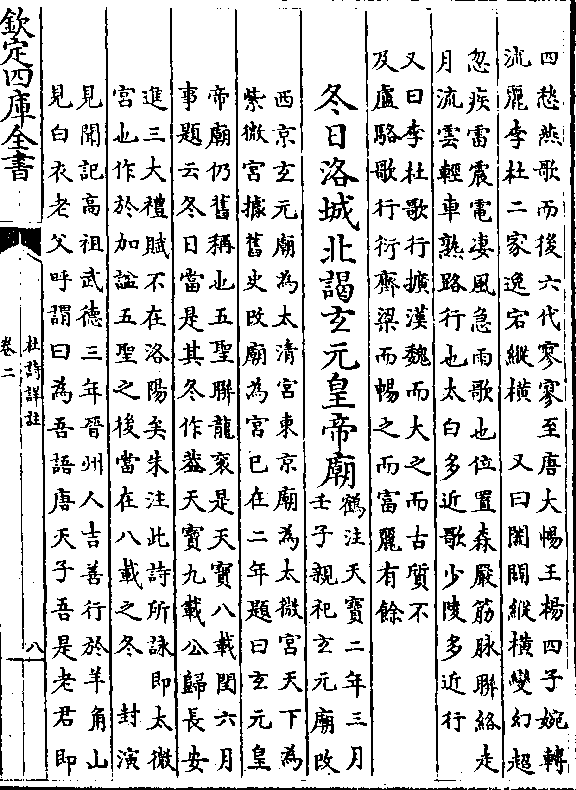 四愁燕歌而後六代寥寥至唐大暢王楊四子婉轉
流麗李杜二家逸宕縱橫　又曰闔闢縱橫變幻超
忽疾雷震電凄風急雨歌也位置森嚴筋脉聯絡走
月流雲輕車熟路行也太白多近歌少陵多近行
又曰李杜歌行擴漢魏而大之而古質不
及盧駱歌行衍齊梁而暢之而富麗有餘
冬日洛城北謁玄元皇帝廟
鶴注天寶二年三月
壬子親祀玄元廟改
西京玄元廟為太清宮東京廟為太微宮天下為
紫微宮據舊史改廟為宮已在二年題曰玄元皇
帝廟仍舊稱也五聖聯龍衮是天寶八載閏六月
事題云冬日當是其冬作葢天寶九載公歸長安
進三大禮賦不在洛陽矣朱注此詩所詠即太微
宮也作於加謚五聖之後當在八載之冬　封演
見聞記高祖武德三年晉州人吉善行於羊角山
見白衣老父呼謂曰為吾語唐天子吾是老君即
欽定四庫全書
杜詩詳註
卷二
八